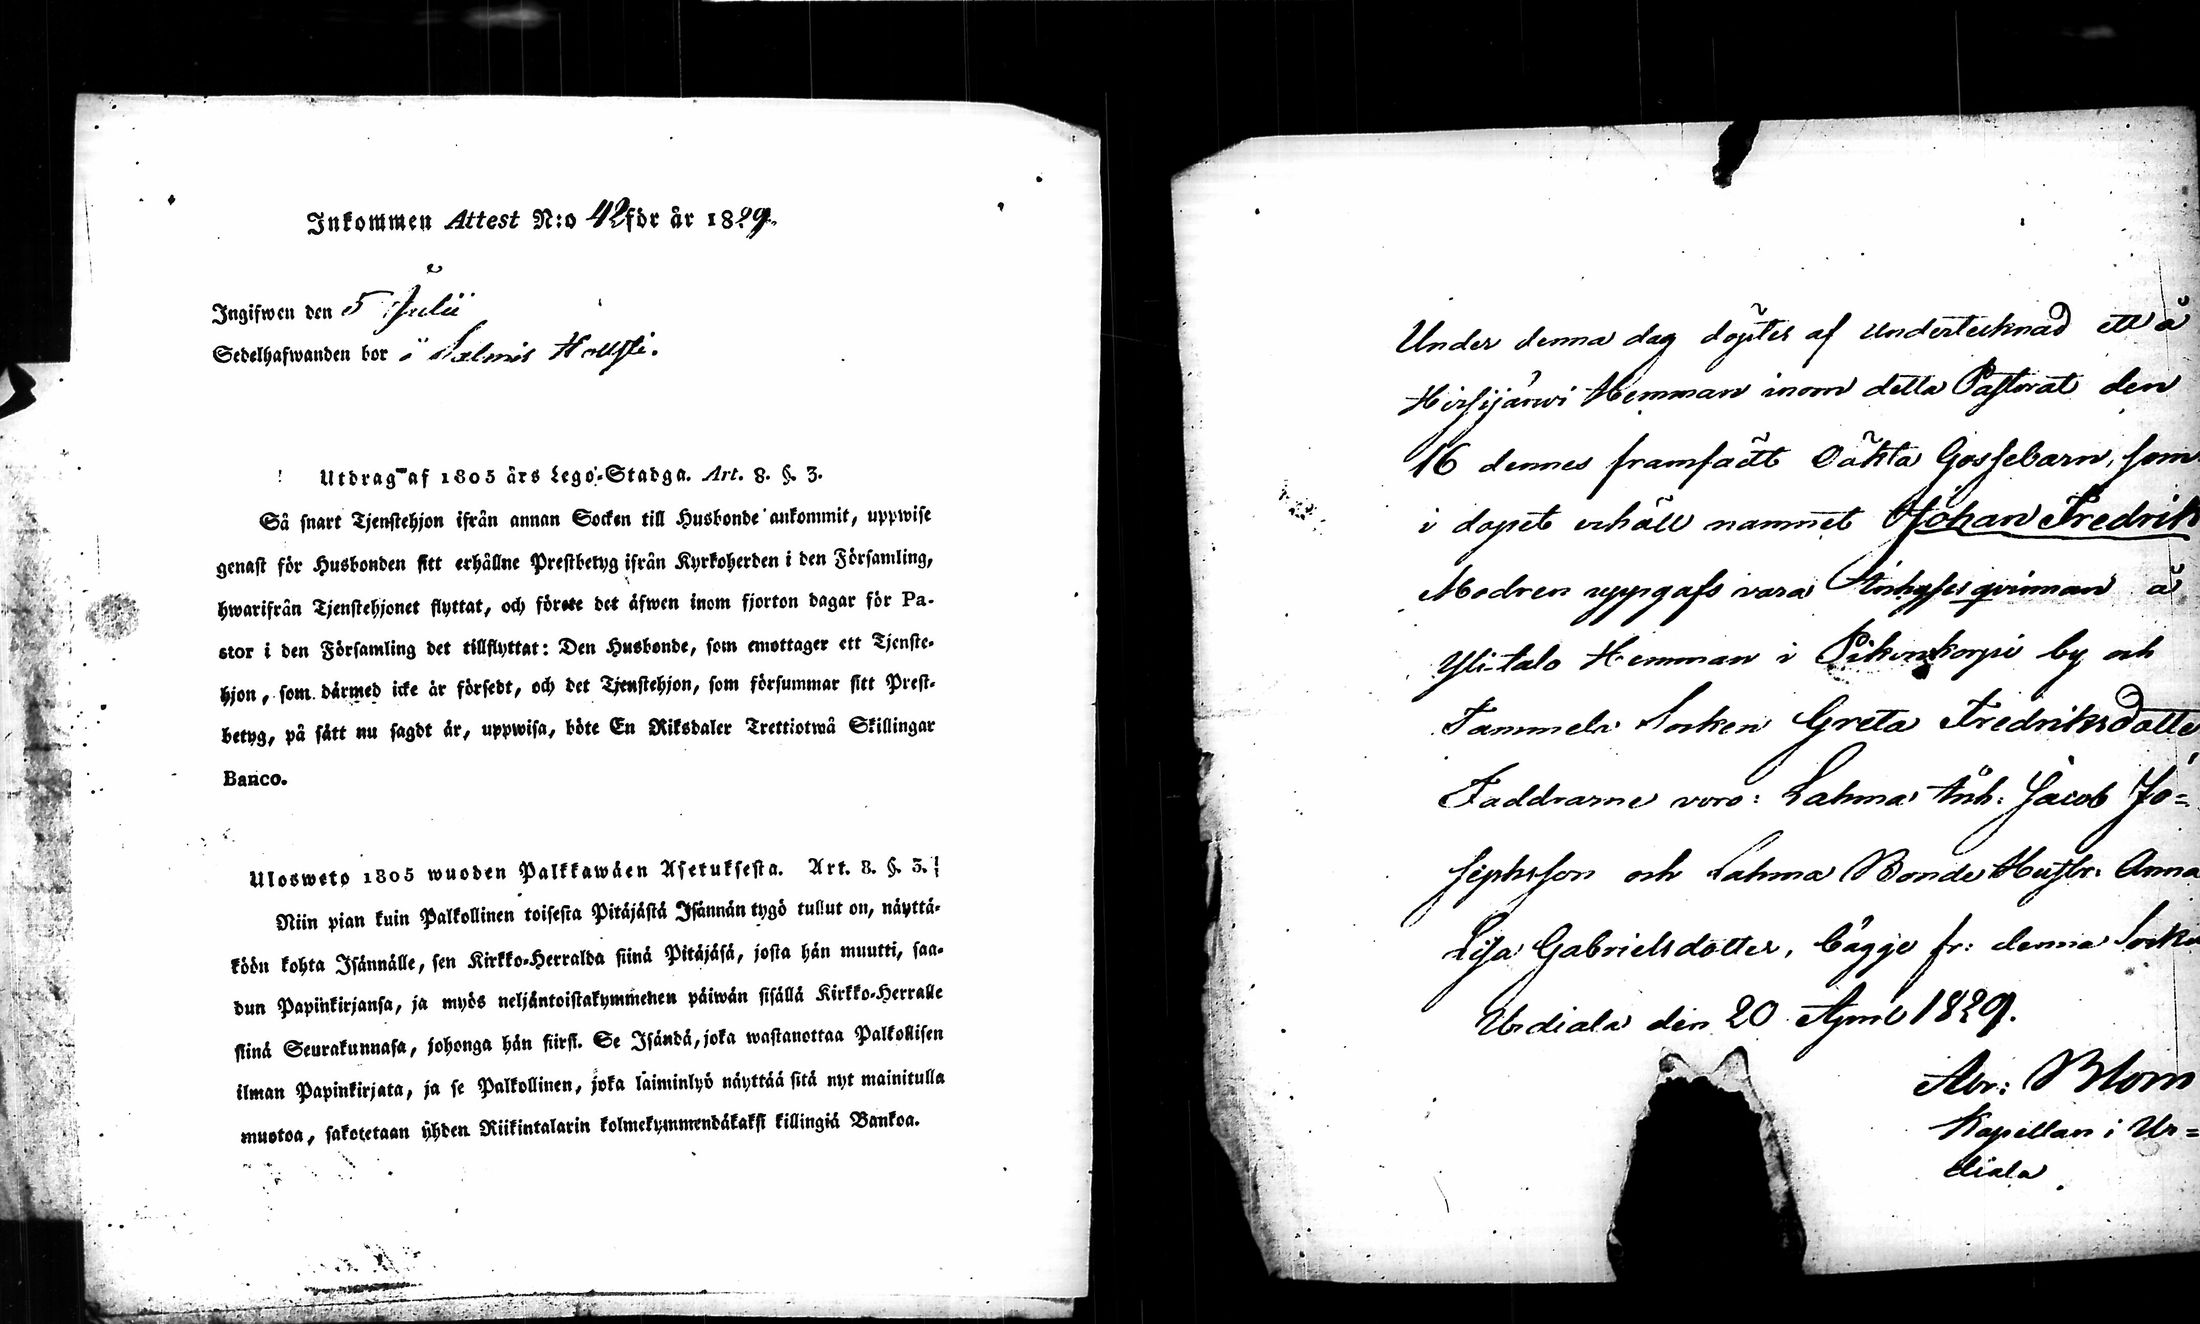 Inkommen Attest N:o 42 för år 1829.
Ingifwen den 5 Julii
Sedelhafwanden bor i Salmis
Utdrag af 1805 års Lego-Stadga. Art. 8. §. 3.
Så snart Tjenstehjon ifrån annan Socken till Husbonde ankommit, uppwise
genast för Husbonden sitt erhållne Prestbetyg ifrån Kyrkoherden i den Församling,
hwarifrån Tjenstehjonet flyttat, och förete det äfwen inom fjorton dagar för Pa-
stor i den Församling det tillflyttat: Den Husbonde, som emottager ett Tjenste-
hjon, som därmed icke är försedt, och det Tjenstehjon, som försummar sitt Prest-
betyg, på sätt nu sagdt är, uppwisa, böte En Riksdaler Trettiotwå Skillingar
Banco.
Ulosweto 1805 wuoden Palkkawäen Asetuksesta. Art. 8. §. 3.
Niin pian kuin Palkollinen toisesta Pitäjästä Isännän tygö tullut on, näyttä-
köön kohta Isännälle, sen Kirkko-Herralda siinä Pitäjäsä, josta hän muutti, saa-
dun Papinkirjansa, ja myös neljäntoistakymmenen päiwän sisällä Kirkko-Herralle
siinä Seurakunnasa, johonga hän siirst. Se Isändä, joka wastanottaa Palkollisen
ilman Papinkirjata, ja se Palkollinen, joka laiminlyö näyttää sitä nyt mainitulla
muotoa, sakotetaan yhden Riikintalarin kolmekymmendäkaksi killingiä Bankoa.
Under denna dag döptes af undertecknad ett å
Hirsijärwi Hemman inom detta Pastorat den
16 dennes framfödt Oäkta Gossebarn, som
i dopet erhöll namnet Johan Fredrik
Modren uppgafs vara Inhyses qvinnan å
Ylitalo Hemman i by och
Tammela Socken Greta Fredriksdotte
Faddrarne voro: Lahma Inh: Jacob Jo=
sephsson och Lahma Bonde Hustr: Anna
Lisa Gabrielsdotter, bägge fr: denna Socke
Urdiala den 20 April 1829.
Abr: Blom
Kapellan i Ur=
diala